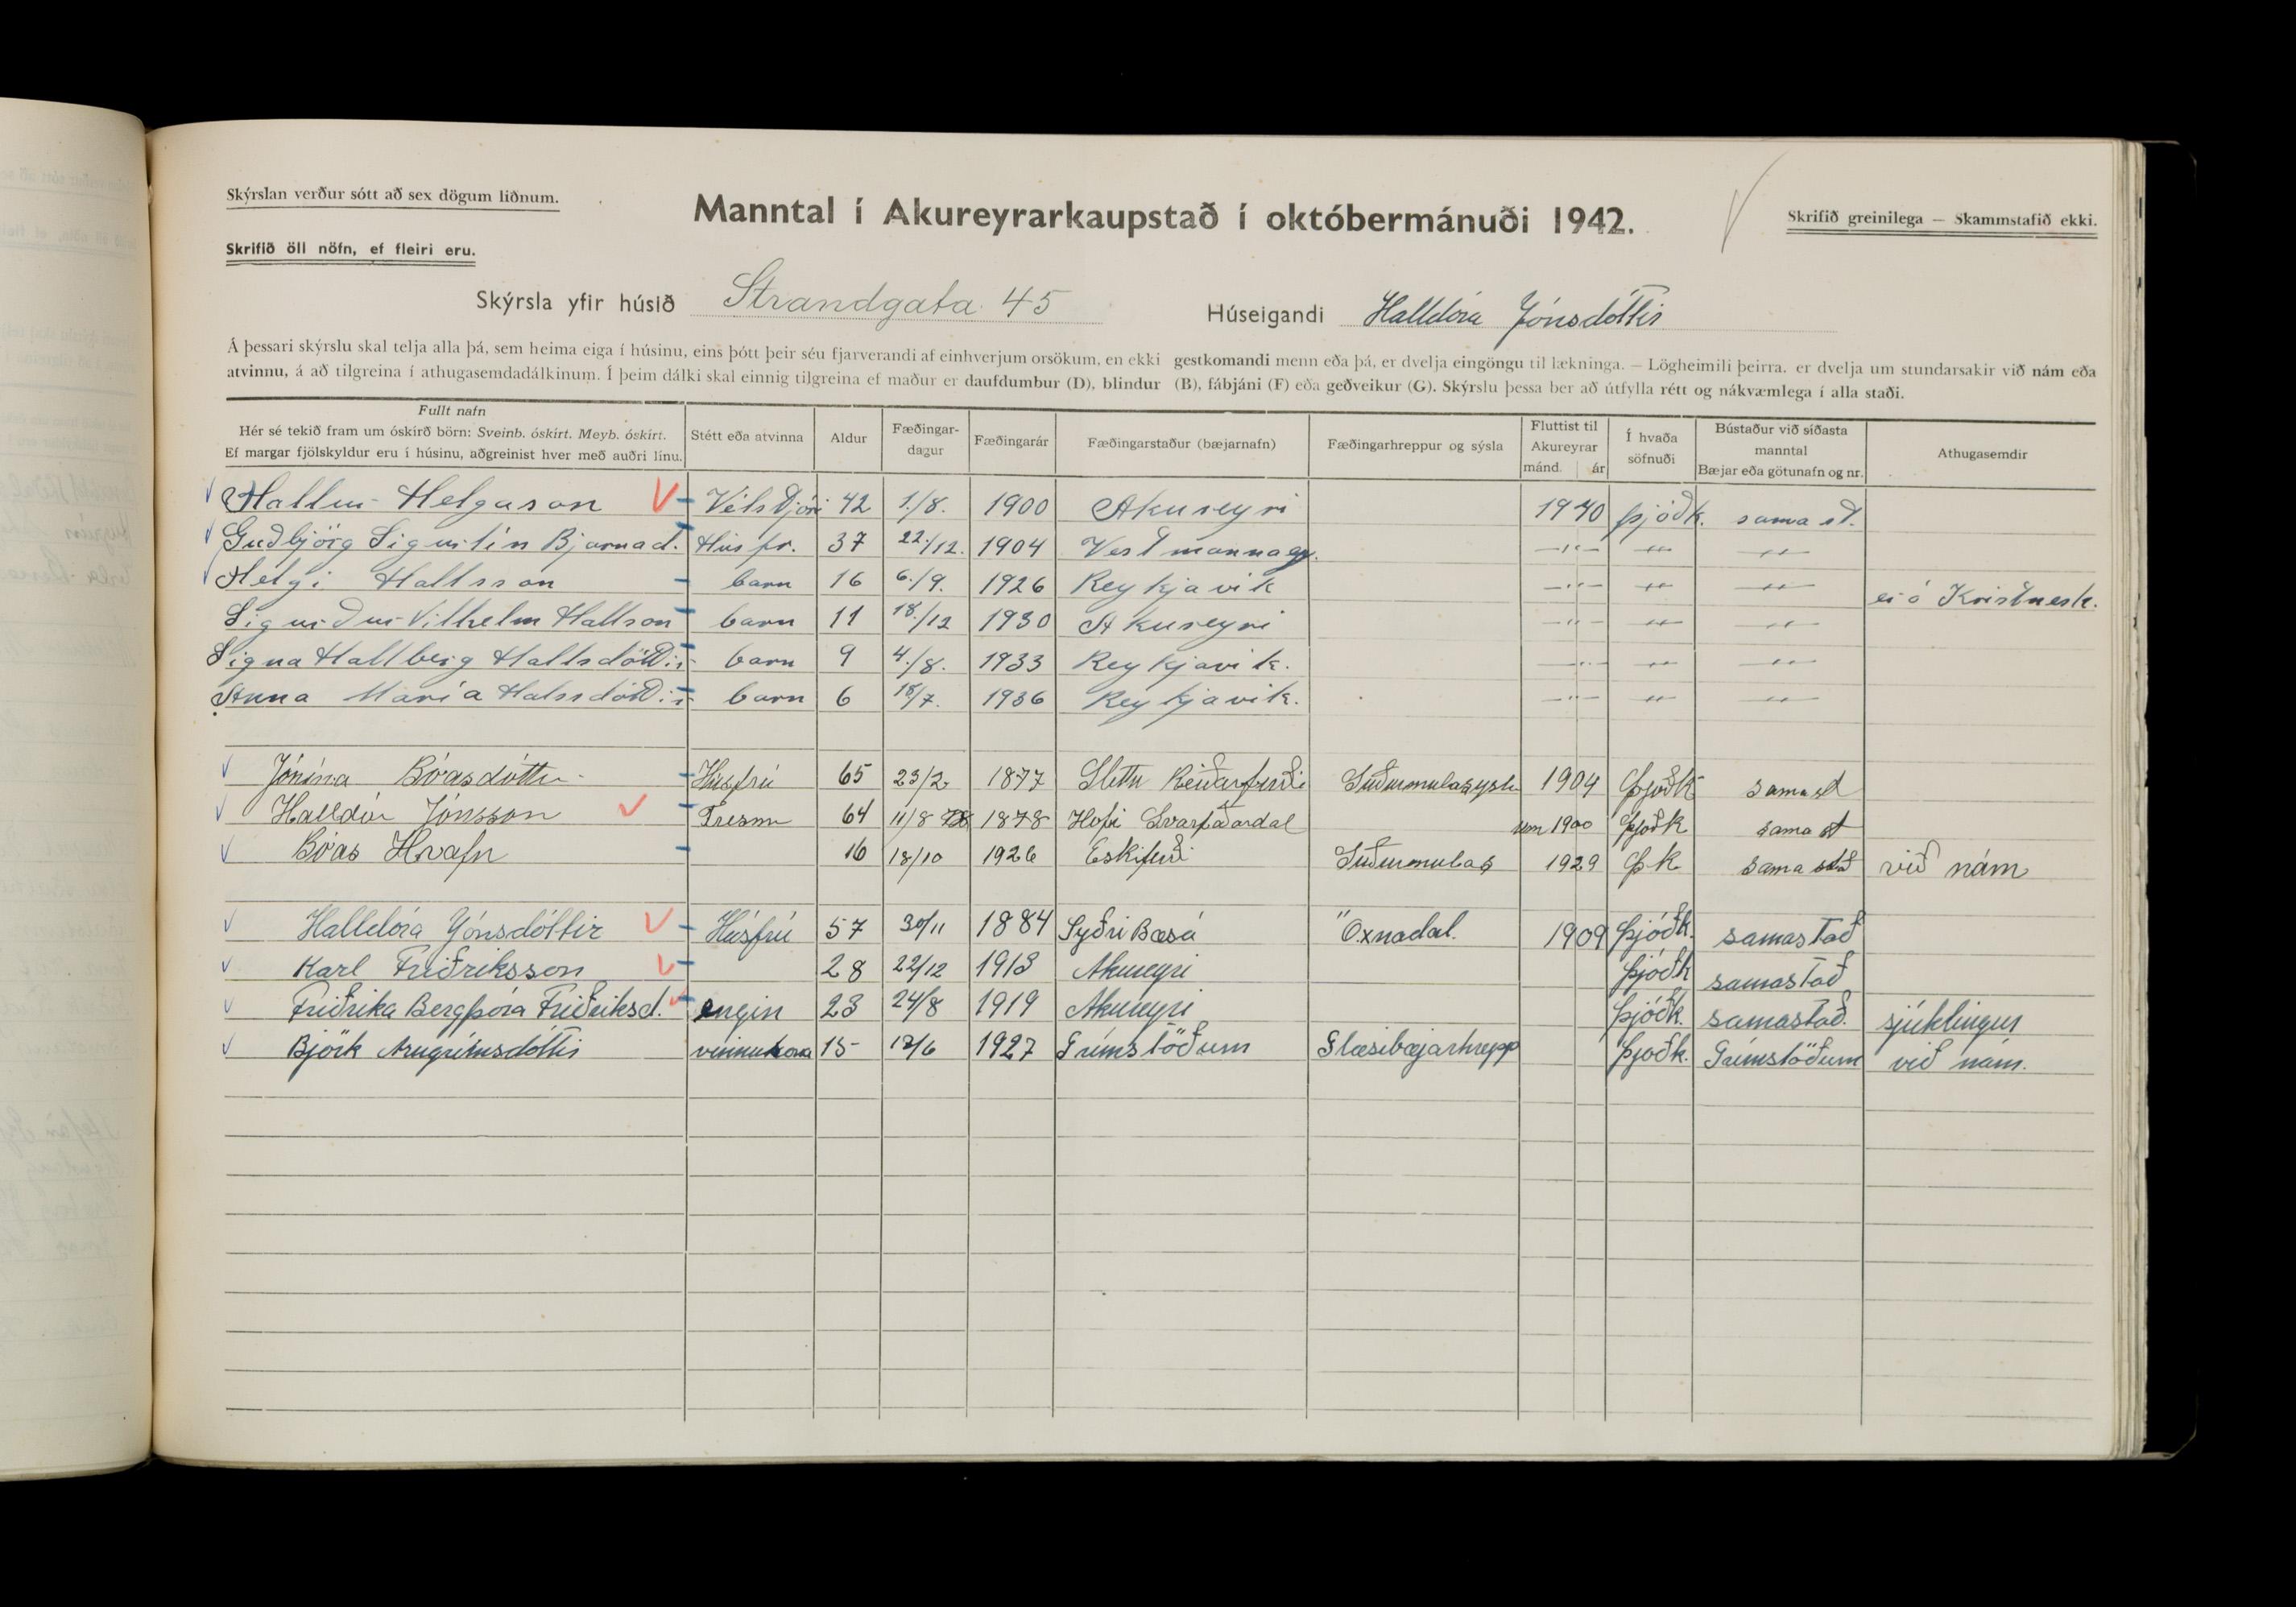 Skýrslan verður sótt að sex dögum liðnum.
Skrifið öll nöfn, ef fleiri eru.
Manntal í Akureyrarkaupstað í októbermánuði 1942.
Skrifið greinilega — Skammstafið ekki.
Skýrsla yfir húsið Strandgata 45 Húseigandi Halldóra Jónsdóttir
Á þessari skýrslu skal telja alla þá, sem heima eiga í húsinu, eins þótt þeir séu fjarverandi af einhverjum orsökum, en ekki gestkomandi menn eða þá, er dvelja eingöngu til lækninga. — Lögheimili þeirra. er dvelja um stundarsakir við nám eða
atvinnu, á að tilgreina í athugasemdadálkinum. Í þeim dálki skal einnig tilgreina ef maður er daufdumbur (D), blindur (B), fábjáni (F) eða geðveikur (G). Skýrslu þessa ber að útfylla rétt og nákvæmlega í alla staði.
Fullt nafn
Hér sé tekið fram um óskírð börn: Sveinb. óskírt. Meyb. óskírt.
Ef margar fjölskyldur eru í húsinu, aðgreinist hver með auðri línu.
Stétt eða atvinna
Aldur
Fæðingar-
dagur
Fæðingarár
Fæðingarstaður (bæjarnafn)
Fæðingarhreppur og sýsla
Fluttist til
Akureyrar
mánd. ár
Í hvaða
söfnuði
Bústaður við síðasta
manntal
Bæjar eða götunafn og nr.
Athugasemdir
Hallur Helgason Vélstjóri 42 1./8. 1900 Akureyri 1940 þjóðk. sama st.
Guðbjörg Sigurlín Bjarnad. Húsfr. 37 22./12. 1904 Vestmannaey. —"— —"— —"—
Helgi Hallsson barn 16 6./9. 1926 Reykjavik —"— —"— —"— er á Kristnesh.
Sigurður Vilhelm Hallson barn 11 18./12 1930 Akureyri —"— —"— —"—
Signa Hallberg Hallsdóttir barn 9 4./8. 1933 Reykjavik. —"— —"— —"—
Anna María Halssdóttir barn 6 18/7. 1936 Reykjavik. —"— —"— —"—
Jónína Bóasdóttir Húsfrú 65 23/2 1877 Sléttu Reiðarfirði Suðurmulasysla 1904 Þjoðk sama st
Halldór Jónsson Tresm 64 11/8 1878 Hofi Svarfaðardal um 1900 þjoðk sama st
Bóas Hrafn 16 18/10 1926 Eskifirði Suðurmulas 1929 Þ k sama stað við nám
Halldóra Jónsdóttir Húsfrú 57 30/11 1884 Syðri Bæsá Öxnadal. 1909 Þjóðk. samastað
Karl Friðriksson 28 22/12 1913 Akureyri Þjóðk samastað
Friðrika Bergþóra Friðriksd. engin 23 24/8 1919 Akureyri Þjóðk. samastað. sjúklingur
Björk Arngrímsdóttir vinnukona 15 12/6 1927 Grímstöðum Glæsibæjarhrepp Þjoðk. Grímstöðum við nám.